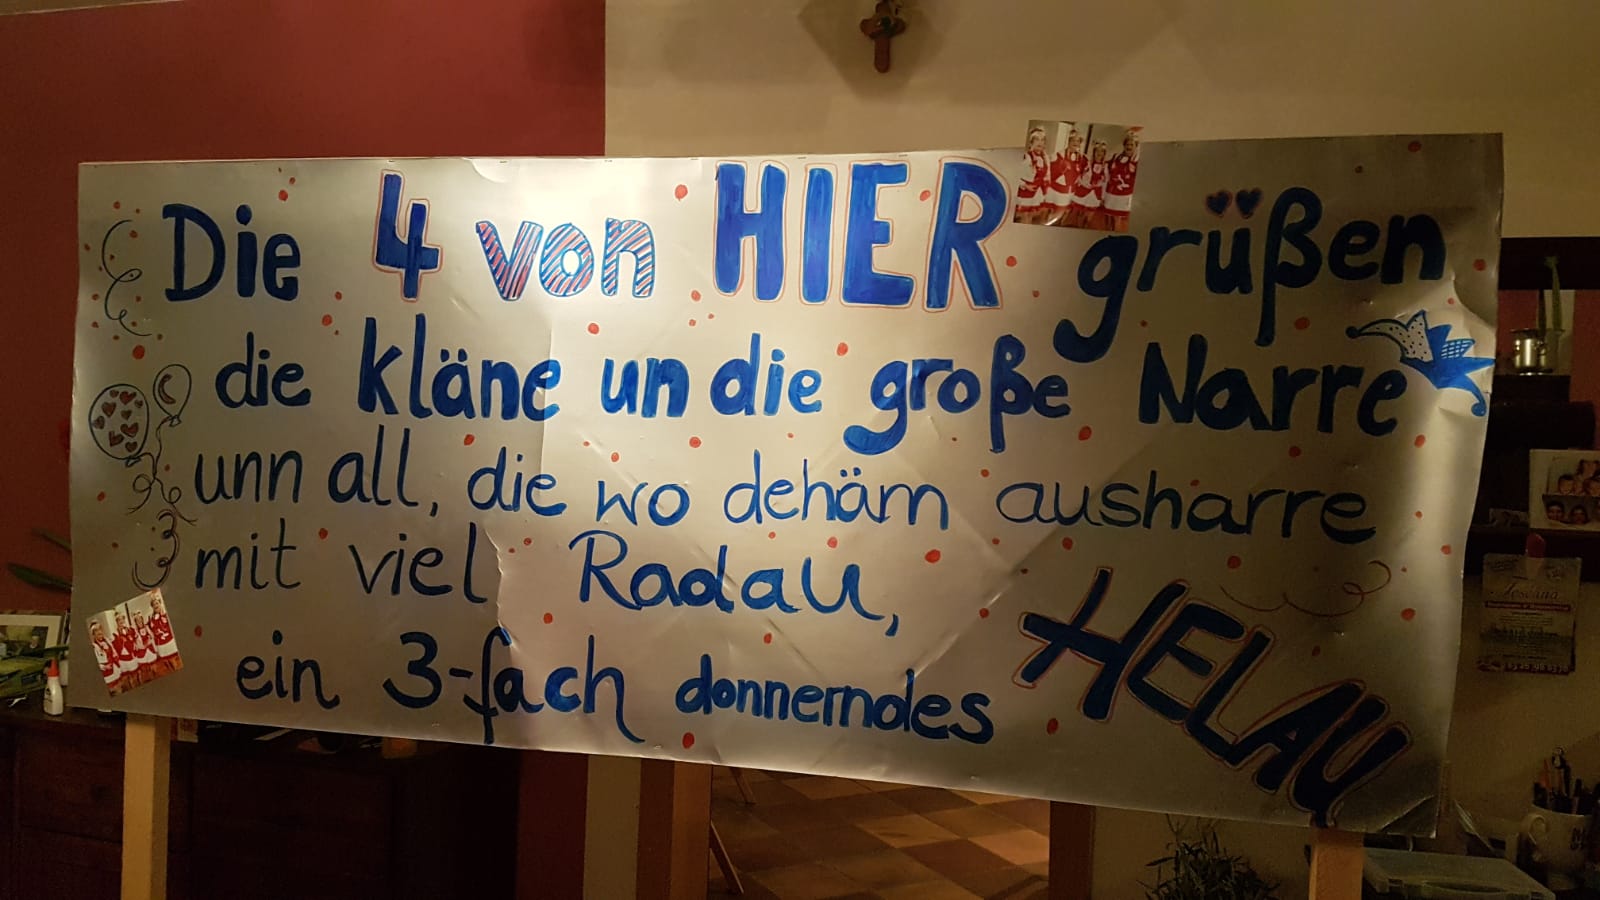 Die 4 von HIER grüßen
die kläne un die große Narre
unn all, die wo dehäm ausharre
mit viel Radau,
ein 3-fach donnerndes HELAU
Toscana